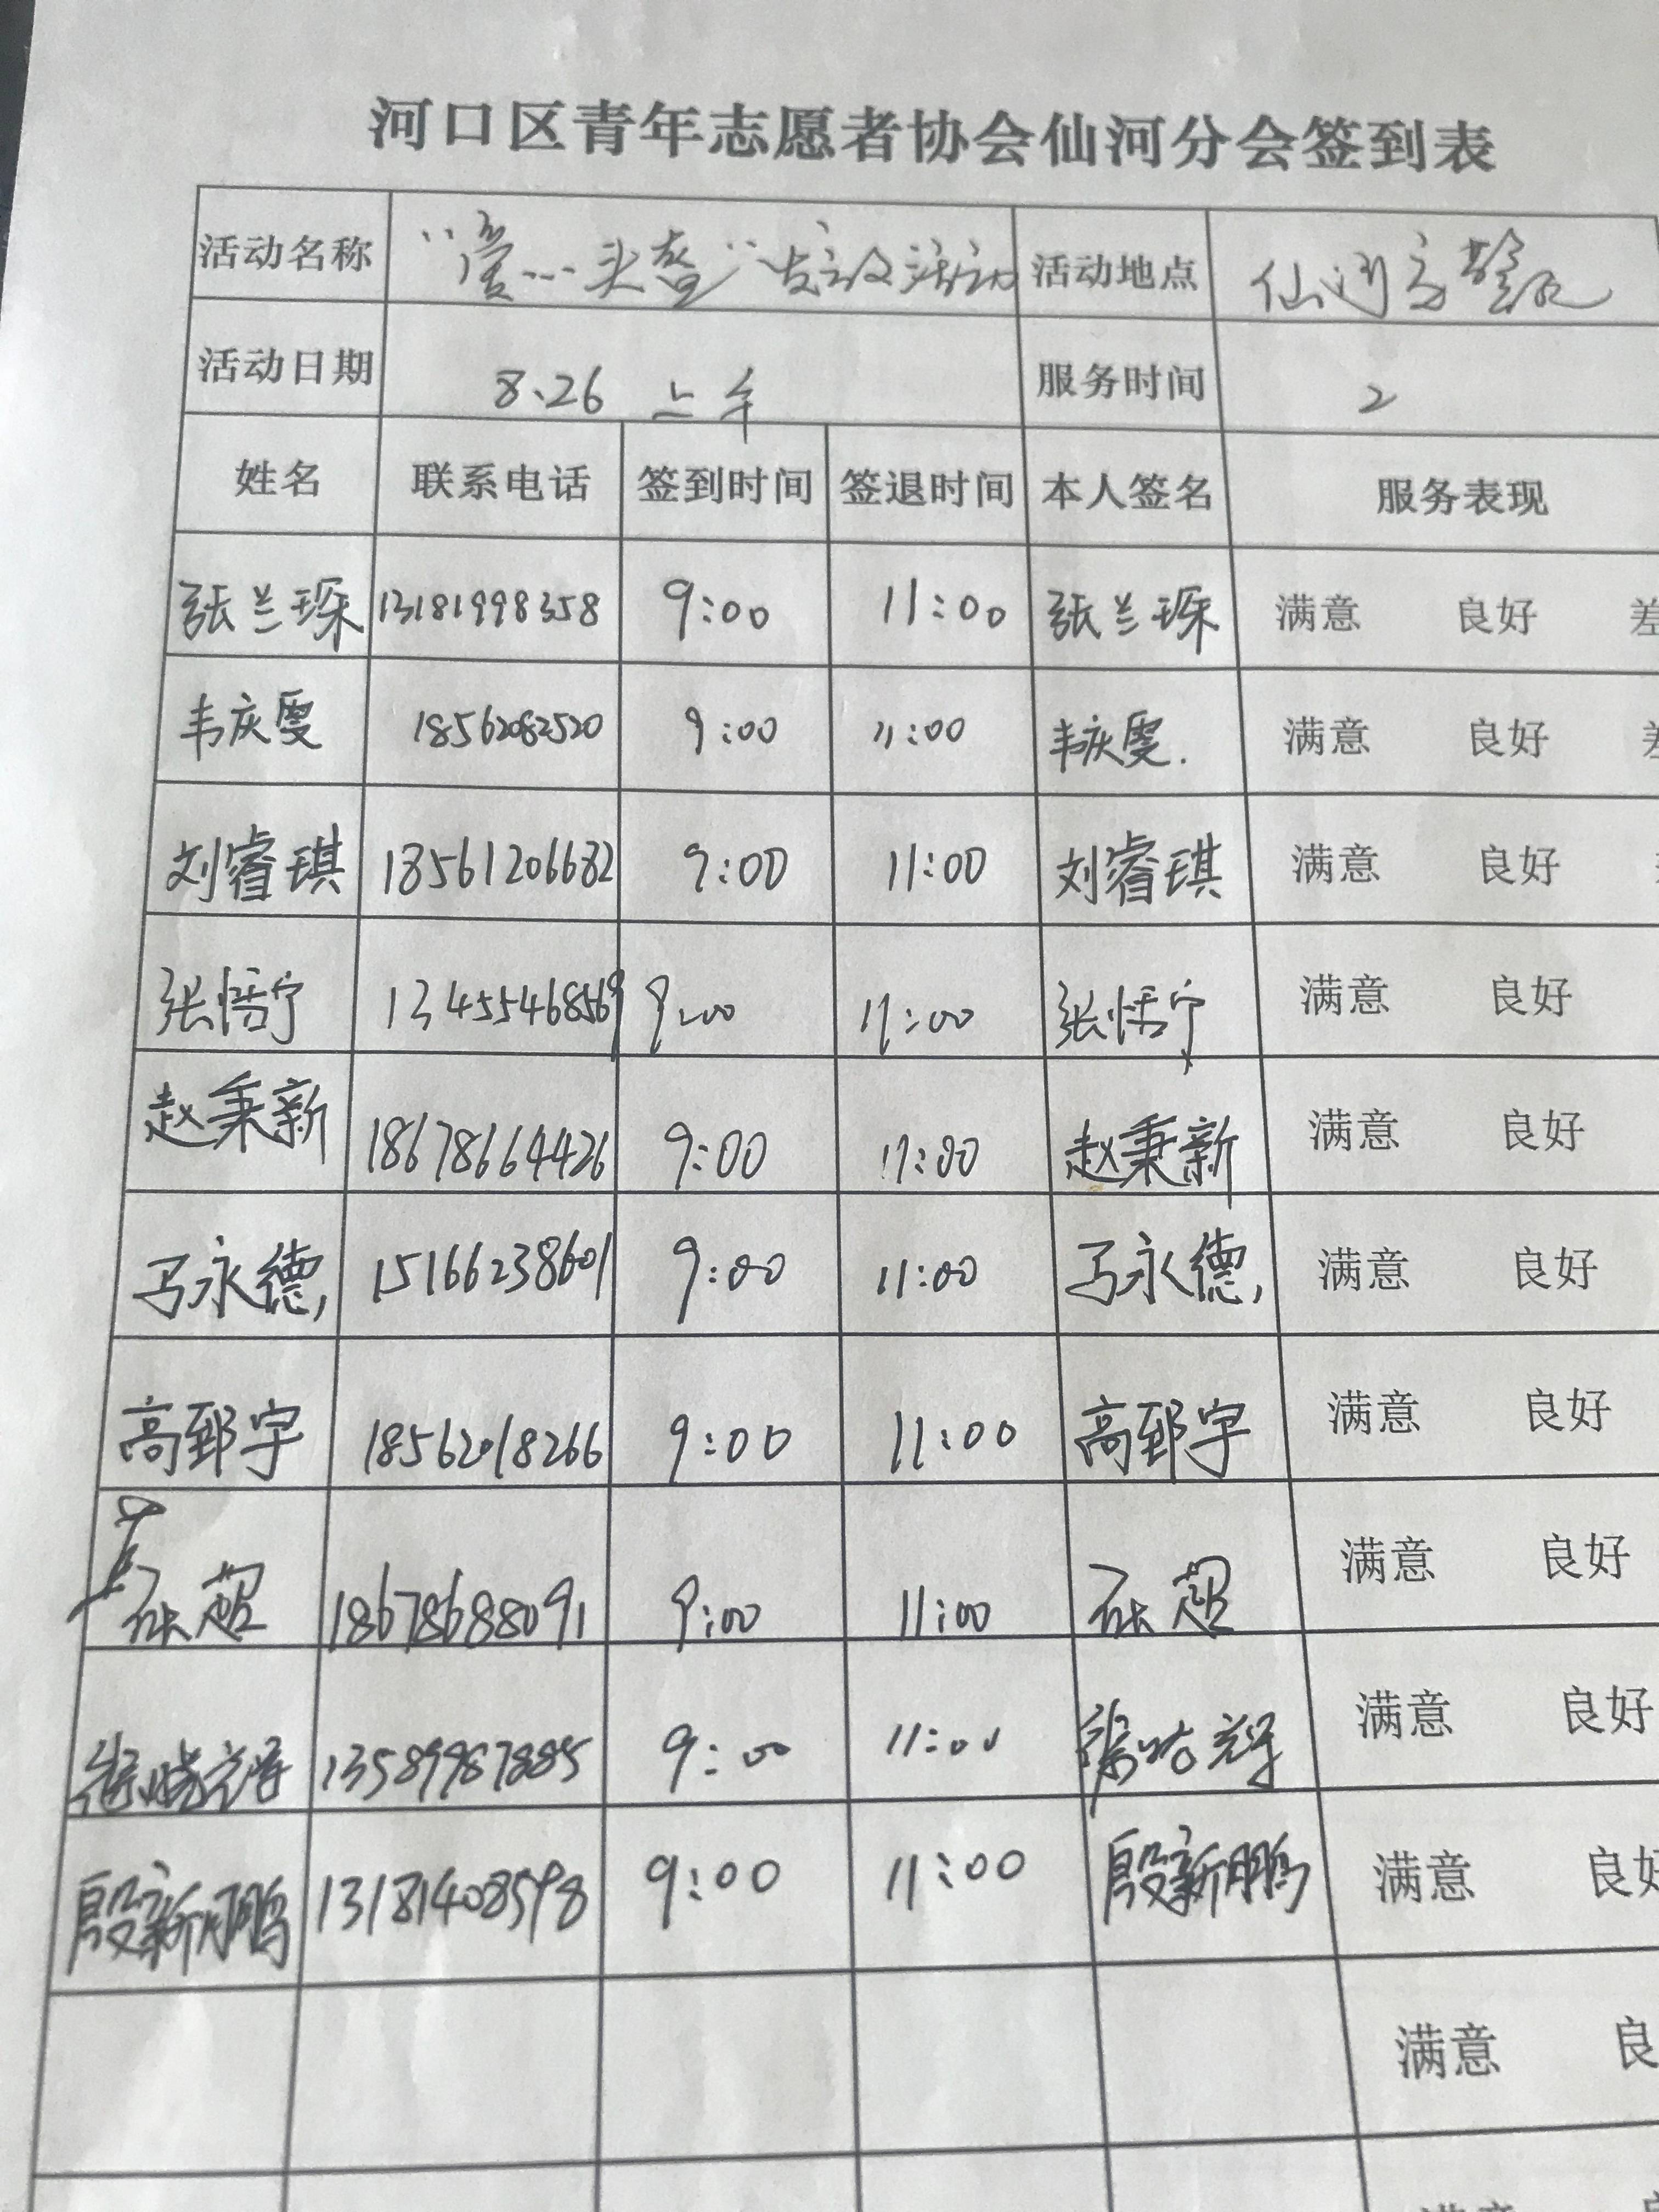 河口区青年志愿者协会仙河分会签到表
活动名称 "爱心头盔"发放活动 活动地点 仙河交警队
活动日期 8、26 上午 服务时间 2
姓名 联系电话 签到时间 签退时间 本人签名 服务表现
张兰琛 13181998358 9:00 11:00 张兰琛 满意 良好 差
韦庆雯 18562082520 9:00 11:00 韦庆雯. 满意 良好 差
刘睿琪 18561206682 9:00 11:00 刘睿琪 满意 良好
张恬宁 13455468569 9:00 11:00 张恬宁 满意 良好
赵秉新 18678664426 9:00 11:00 赵秉新 满意 良好
马永德, 15166238601 9:00 11:00 马永德, 满意 良好
高郅宇 18562018266 9:00 11:00 高郅宇 满意 良好
超 18678688091 9:00 11:00 超 满意 良好
13589987885 9:00 11:00 满意 良好
殷新鹏 13181408598 9:00 11:00 殷新鹏 满意 良好
满意 良
满意